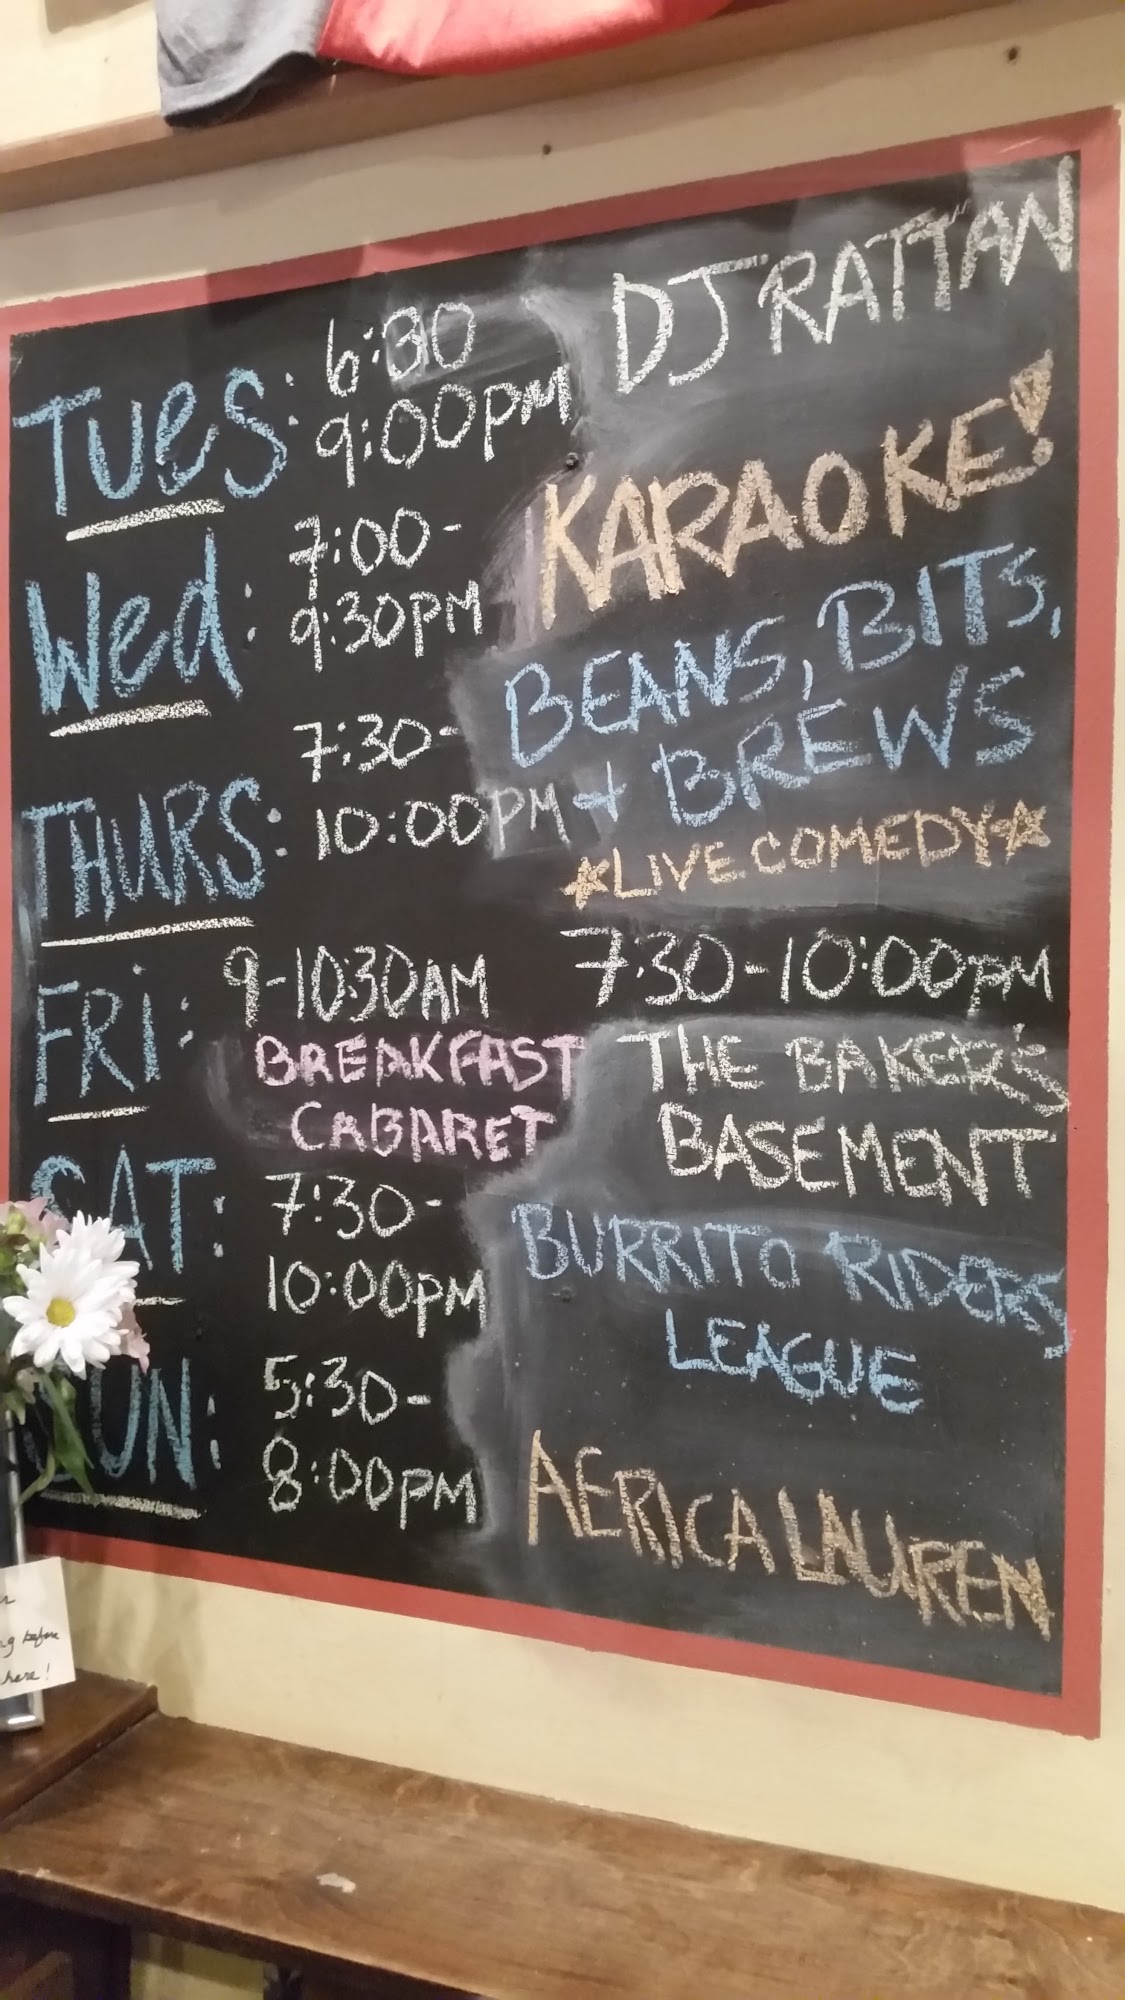 Tues: 6:30 DJ RATTAN
9:00PM
Wed: 7:00- KARAOKE!
9:30PM
THURS: 7:30- BEANS, BITS,
10:00PM + BREWS
LIVE COMEDY
FRI: 9-10:30AM 7:30-10:00PM
BREAKFAST THE BAKER'S
CABARET BASEMENT
SAT: 7:30- BURRITO RIDERS
10:00PM LEAGUE
SUN: 5:30-
8:00PM AERICA LAUREN
before
here!